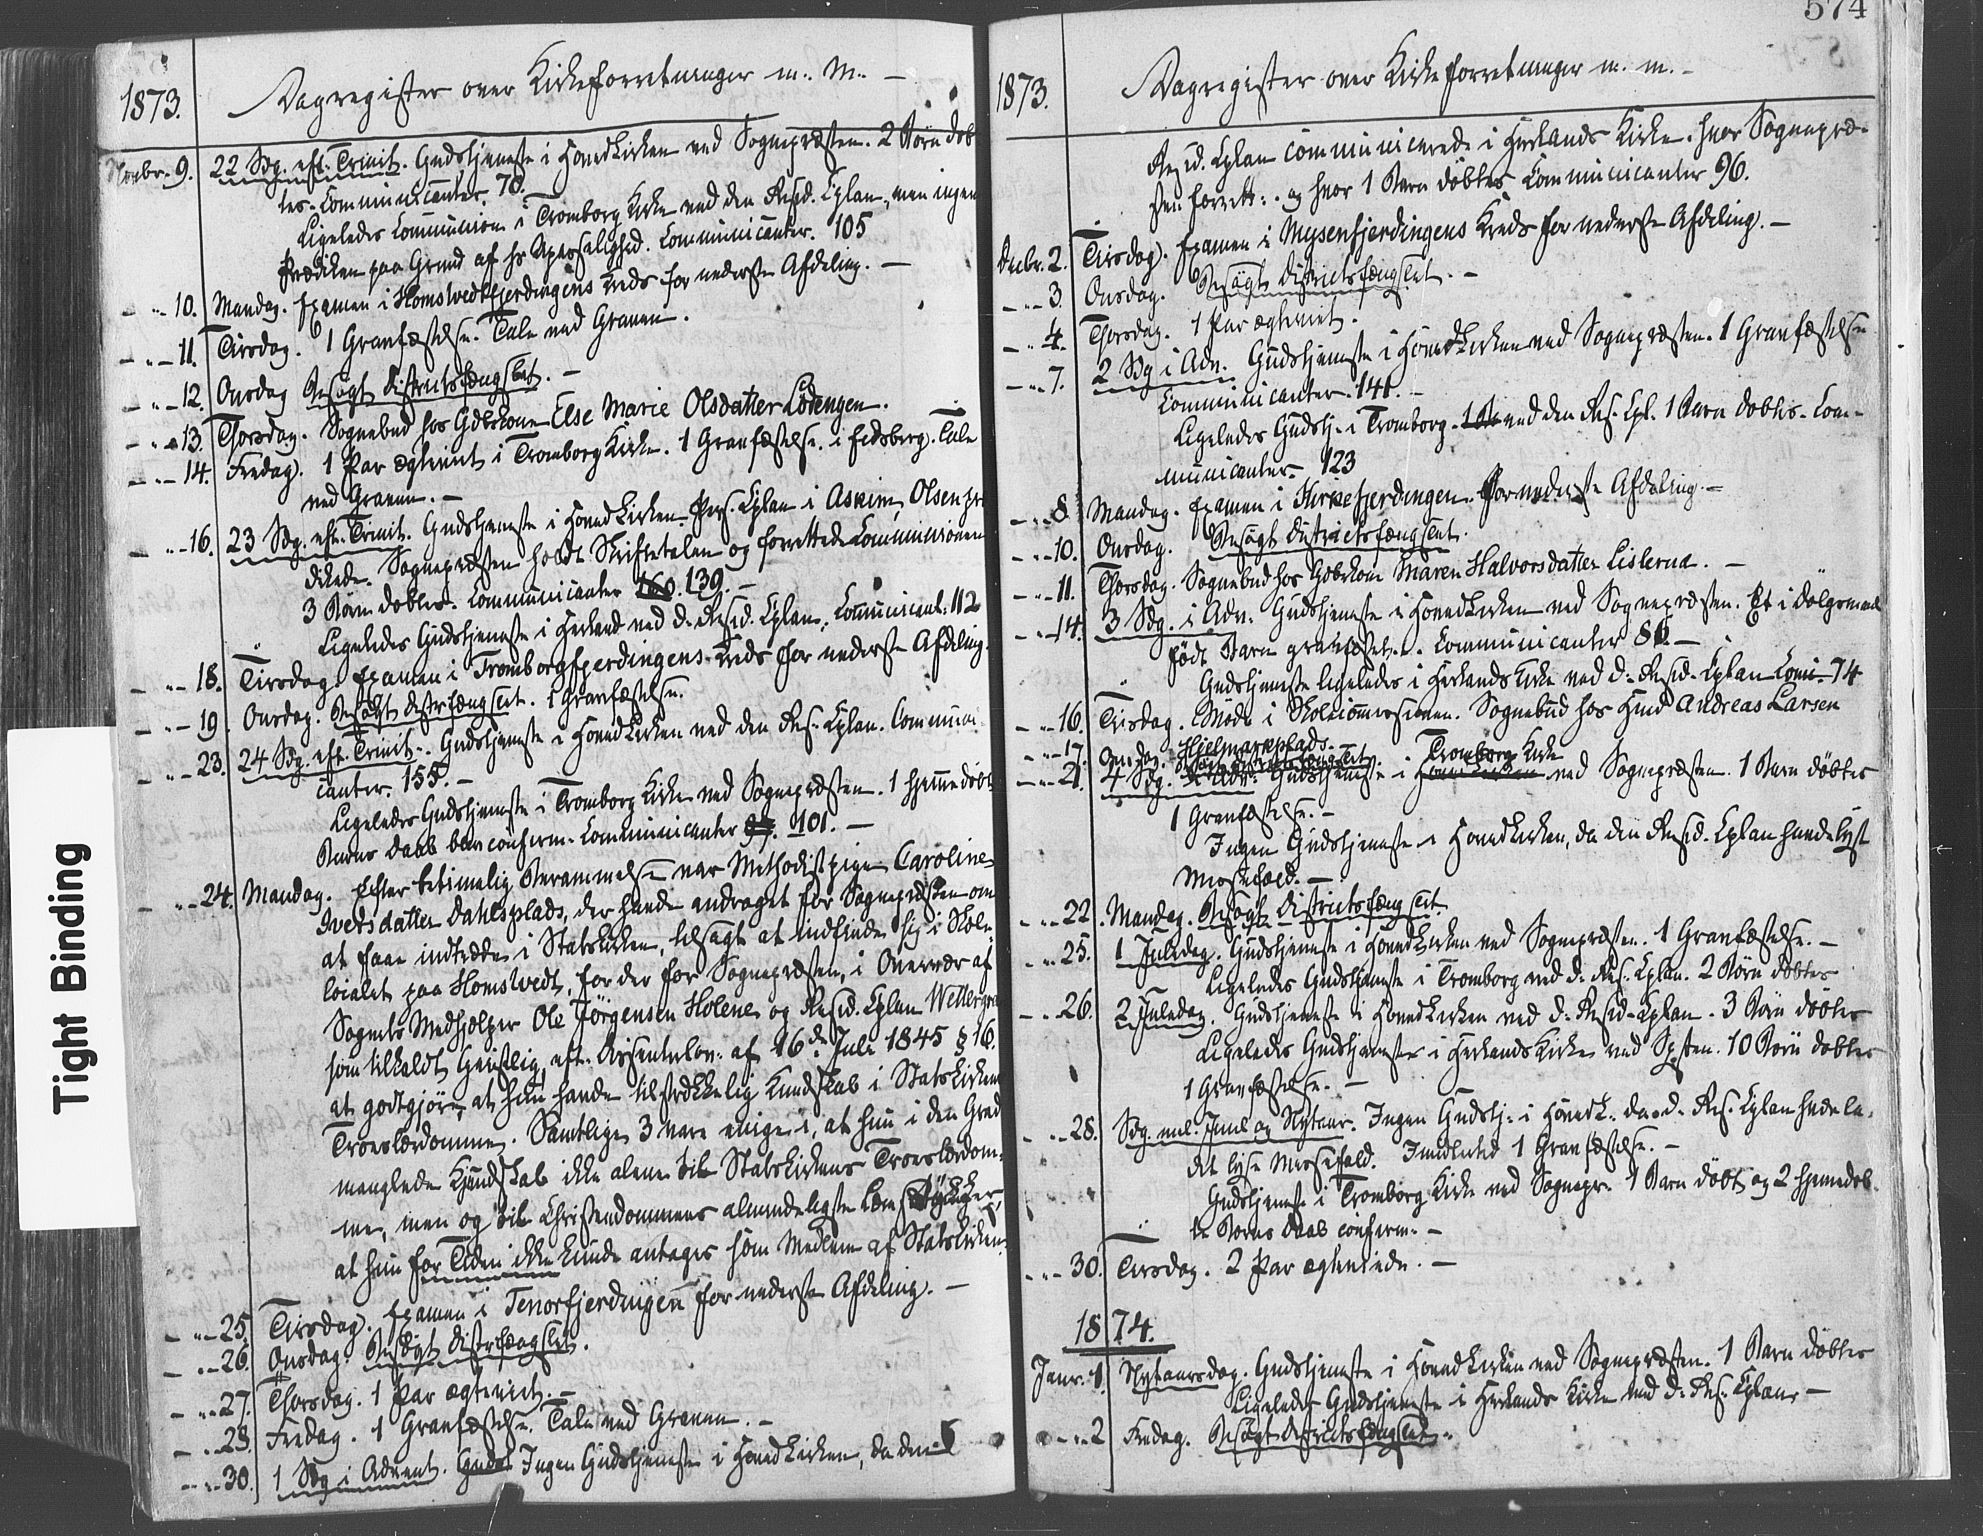 1873.
Dagregister over Kirkeforretninger m. M. –
Novbr. 9. 22 Sdg. eft. Trinit. Gudstjeneste i Hovedkirken ved Sognepræsten. 2 Børn døb-
tes. Communicanter. 70. –
Ligeledes Communion i Tromborg Kirke ved den Resid. Cplan., men ingen
Prædiken paa Grund af hs Upasselighed. Communicanter. 105
– " – 10. Mandag. Examen i Homstvedtfjerdingens Kreds for nederste Afdeling. –
– " – 11. Tirsdag. 1 Gravfæstelse. Tale ved Graven.
– " – 12. Onsdag Besøgt Districtsfængslet. –
– " – 13. Thorsdag. Sognebud hos Gdbrkone Else Marie Olsdatter Lörengen.
– " – 14. Fredag. 1 Par ægteviet i Tromborg Kirke. 1 Gravfæstelse i Eidsberg. Tale
ved Graven. –
– " – 16. 23 Sdg. eft. Trinit. Gudstjeneste i Hovedkirken. Pers. Cplan i Askim, Olsen præ
dikede. Sognepræsten holdt Skriftetalen og forrettede Communionen
3 Børn døbtes. Communicanter 160. 139 –
Ligeledes Gudstjeneste i Herland ved d. Resid. Cplan. Communicant: 112
– " – 18. Tirsdag. Examen i Tromborgfjerdingens Kreds for nederste Afdeling.
– " – 19. Onsdag. Besøgt Distrfængslet. 1 Gravfæstelse.
– " – 23. 24 Sdg. eft. Trinit. Gudstjeneste i Hovedkirken ved den Res. Cplan. Communi-
canter. 155. –
Ligeledes Gudstjeneste i Tromborg Kirke ved Sognepræsten. 1 hjemmedøbt
Barns Daab blev conferm. Communicanter 101. –
– " – 24. Mandag. Efter betimelig Berammelse var Methodistpige Caroline
Iversdatter Dahlsplads, der havde andraget for Sognepræsten om
at faae indtræde i Statskirken, tilsagt at indfinde sig i Skole-
localet paa Homstvedt, for der for Sognepræsten, i Overvær af
Sognets Medhjælper Ole Jörgensen Holene og Resid. Cplan Wettergre
som tilkaldt Geistlig, eft. Dissenterlov. af 16de Juli 1845 § 16.
at godtgjøre, at hun havde tilstrækkelig Kundskab i Statskirkens
Troeslærdomme. Samtlige 3 vare enige i, at hun i den Grad
manglede Kundskab ikke alene til Statskirkens Troeslærdom-
me, men og til Christendommens almindeligste Lærestykker,
at hun for Tiden ikke kunde antages som Medlem af Statskirken.
– " – 25. Tirsdag. Examen i Tenorfjerdingen for nederste Afdeling. –
– " – 26. Onsdag. Besøgt Distrfængslet.
– " – 27. Thorsdag. 1 Par ægteviet. –
– " – 28. Fredag. 1 Gravfæstelse. Tale ved Graven. –
– " – 30. 1 Sdg i Advent. Guds Ingen Gudstjeneste i Hovedkirken, da den
Tight Binding
574
1873.
Dagregister over Kirkeforretninger m. m. –
Resid. Cplan communicerede i Herlands Kirke, hvor Sognepræ-
sten forrett: og hvor 1 Barn døbtes Communicanter 96.
Decbr. 2. Tirsdag. Examen i Mysenfjerdingens Kreds for nederste Afdeling. –
– " – 3. Onsdag. Besøgt Districtsfængslet. –
– " – 4. Thorsdag. 1 Par ægteviet.
– " – 7. 2 Sdg i Adv. Gudstjeneste i Hovedkirken ved Sognepræsten. 1 Gravfæstelse
Communicanter. 141. –
Ligeledes Gudstj. i Tromborg 1 Ba ved den Res. Cpl. 1 Barn døbtes. Com-
municanter. 123
– " – 8 Mandag. Examen i Kirkefjerdingen for nederste Afdeling. –
– " – 10. Onsdag. Besøgt Districtsfængslet.
– " – 11. Thorsdag. Sognebud hos Gdbrkone Maren Halvorsdatter Lislerud. –
– " – 14. 3 Sdg. i Adv. Gudstjeneste i Hovedkirken ved Sognepræsten. Et i Dølgsmaal
født Barn gravfæstet. Communicanter 86. –
Gudstjeneste ligeledes i Herlands Kirke ved d. Resid. Cplan Comm. 74
– " – 16. Tirsdag. Møde i Skolecommissionen. Sognebud hos Hmd Andreas Larsen
Hjelmarkplads.
– " – 17. Onsdag. Besøgt Districtsfængslet
– " – 21. 4 Sdg. i Adv. Gudstjeneste i Hovedkirken Tromborg Kirke ved Sognepræsten. 1 Barn døbtes
1 Gravfæstelse. –
Ingen Gudstjeneste i Hovedkirken, da den Resid. Cplan havde lyst
Messefald. –
– " – 22. Mandag. Besøgt Districtsfængslet.
– " – 25. 1 Juledag. Gudstjeneste i Hovedkirken ved Sognepræsten. 1 Gravfæstelse. –
Ligeledes Gudstjeneste i Tromborg ved d. Res. Cplan. 2 Børn døbtes
– " – 26. 2 Juledag. Gudstjeneste i Hovedkirken ved d. Resid. Cplan. 3 Børn døbtes
Ligeledes Gudstjeneste i Herlands Kirke ved Spsten. 10 Børn døbtes
1 Gravfæstelse. –
– " – 28. Sdg. mel. Juul og Nytaar. Ingen Gudstj. i Hovedk. da d. Res. Cplan havde la-
det lyse Messefald. Imidlertid 1 Gravfæstelse. –
Gudstjeneste i Tromborg Kirke ved Sognepr. 1 Barn døbt og 2 hjemmedøb-
te Børns Daab conferm. –
– " – 30. Tirsdag. 2 Par ægteviede. –
1874.
Janr. 1. Nytaarsdag. Gudstjeneste i Hovedkirken ved Sognepræsten. 1 Barn døbtes
Ligeledes Gudstjeneste i Herlands Kirke ved d. Res. Cplan. –
– " – 2 Fredag. Besøgt Districtsfængslet.